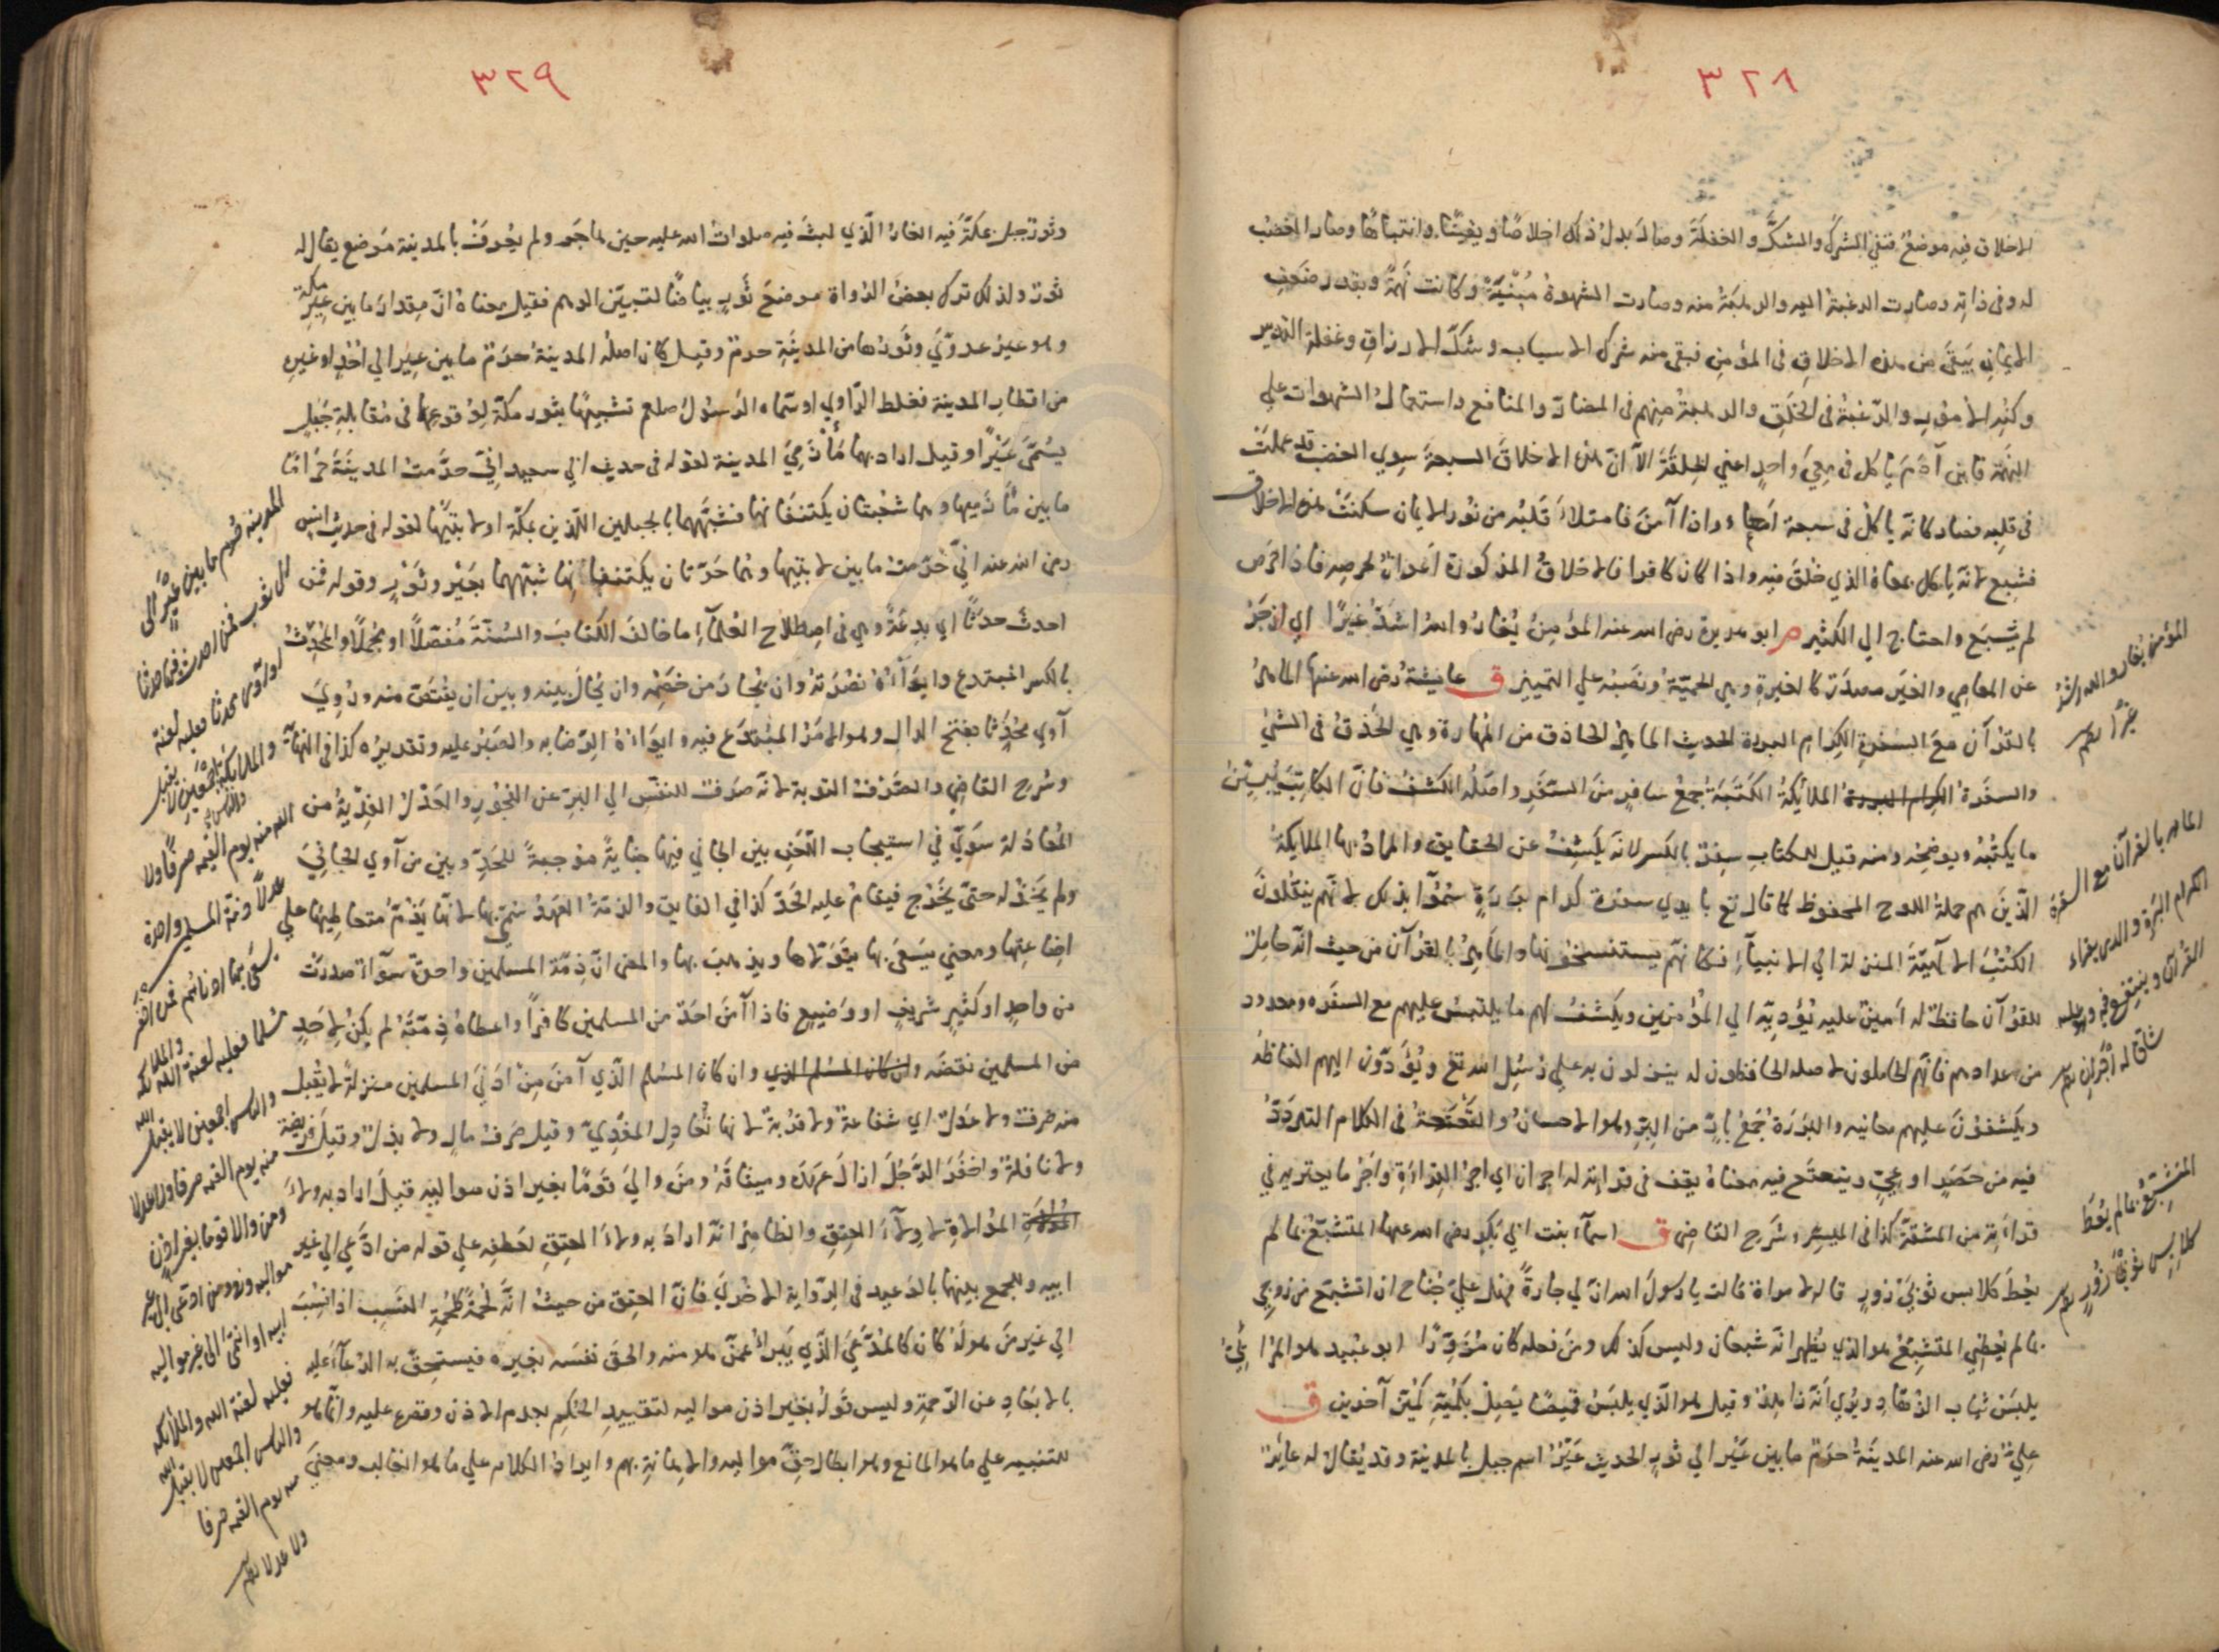 ٣٢٨
الاخلاق فيه موضعٌ فنفي الشرك والشكَّ والغفلةَ وصارَ بدل ذلك اخلاصًا ويقينًا وانتباهًا وصار الغضب
له وفي ذاته وصارت الرغبة اليه والرهبة منه وصارت الشهوة مُنْيَةً وكانت نَهمَةً وبقدر ضعف
الايمان يبقى من هذه الاخلاق في المؤمن فبقي منه شرك الاسباب وشكّ الارزاق وغفلة التدبير
وكثير الامور والرغبة في الخلق والرهبة منهم في المضارّ والمنافع واستعمال الشهوات على
النهمة فابن آدم ياكل في مِعيً واحدٍ اعني خِلقَةً الّا انّ هذه الاخلاق السبعة سوي الغضب قد عملت
في قلبه فصار كانه ياكل في سبعة امعاءٍ واذا آمن فامتلاء قلبه من نور الايمان سكنت هذه الاخلاق
فشبع لانه ياكل بمعاه الذي خُلق فيه واذا كان كافرا فالاخلاق المذكورة اعوان لحرصه فاذا حرص
لم يشبع واحتاج الي الكثير م ابو هريرة رضي الله عنه المؤمن يغار والله اشدّ غيرًا اي ازجَرُ
عن المعاصي والغَير مصدر كالغيرة وهي الحميّة ونصبه علي التمييز ق عايشة رضي الله عنها الماهر
بالقرآن مع السفرة الكرام البررة الحديث الماهر الحاذق من المهارة وهي الحذق في الشيء
والسفرة الكرام البررة الملائكة الكتبة جمع سافر من السفر واصله الكشف فان الكاتب يبيّن
ما يكتبه ويوضحه ومنه قيل للكتاب سِفر بالكسر لانه يكشف عن الحقايق والمراد بها الملايكة
الذين هم حملة اللوح المحفوظ كما قال تع بايدي سفرة كرام بررةٍ سُمّوا بذلك لانهم ينقلون
الكتب الالهيّة المنزلة الي الانبياء فكانهم يستنسخونها والماهر بالقرآن من حيث انه حامل
للقرآن حافظ له امين عليه يؤديه الي المؤمنين ويكشف لهم ما يلتبس عليهم مع السفرة ومعدود
من عدادهم فانهم الحاملون لاصله الحافظون له ينزلون به علي رُسُل الله تع ويؤدّون اليهم الفاظه
ويكشفون عليهم معانيه والبررة جمع بارّ من البِرّ وهو الاحسان والتعتعة في الكلام التردّد
فيه من حصرٍ او عِيٍّ ويتعتع فيه معناه يقف في قرائته له اجران اي اجر القراءة واجر ما يعتريه في
قراءته من المشقة كذا في الميسر وشرح القاضي ق اسماء بنت ابي بكر رضي الله عنهما المتشبّع بما لم
يعط كلابس ثوبَي زُورٍ قاله لامراة قالت يا رسول الله ان لي جارةً فهل عليّ جُناح ان اتشبّع من زوجي
بما لم يعطني المتشبّع هو الذي يُظهر انّه شبعان وليس كذلك ومن فعله كان مزوّرًا ابو عبيد هو المرائي
يلبس ثياب الزهّاد ويُري انّه زاهد وقيل هو الذي يلبس قميصًا يصل بكمّيه كمّين آخرين ق
عليّ رضي الله عنه المدينة حرم ما بين عَيْر الي ثورٍ الحديث عَيْر اسم جبل بالمدينة وقد يُقال له عاير
المؤمن يغار والله اشدّ
غيرًا
الماهر بالقرآن مع السفرة
الكرام البررة والذي يقراء
القرآن ويتتعتع فيه وهو عليه
شاق له اجران
المتشبّع بما لم يعط
كلابس ثوبَي زُورٍ
٣٢٩
وثور جبل بمكّة فيه الغار الّذي لبث فيه صلوات الله عليه حين هاجر ولم يعرف بالمدينة موضع يقال له
ثور ولذلك ترك بعض الرواة موضع ثورٍ بياضًا لتبيّن الوهم فقيل معناه انّ مقدار ما بين عير مكة
وهو عير عدويّ وثورها من المدينة حرم وقيل كان اصله المدينة حرم ما بين عير الي اُحُد او غيره
من اقطار المدينة فغلط الراوي او سماه الرسول صلعم تشبيهًا بثور مكّة لوقوعها في مقابلة جبل
يسمّى عَيْرًا وقيل اراد بهما مأزمي المدينة لقوله في حديث ابي سعيد انّي حرّمت المدينة حرامًا
ما بين مأزميها وهما شعبتان يكتنفانها فشبّههما بالجبلين اللذين بمكّة او لابتيها لقوله في حديث انس
رضي الله عنه انّي حرّمت ما بين لابتيها وهما حرّتان يكتنفانها شبّههما بعير وثور وقوله فمن
احدث حدثًا اي بدعةً وهي في اصطلاح العلماء ما خالف الكتاب والسُنّة مُفصّلًا او مجملًا والمحدِث
بالكسر المبتدع وايواؤه نصرته وان يُجار من خصمه وان يُحال بينه وبين ان يقتصّ منه ورُوي
آوي محدَثا بفتح الدال وهو الامر المبتدَع فيه وايواؤه الرضا به والصبر عليه وتقديره كذا في النهاية
وشرح القاضي والصرف التوبة لانه صرف للنفس الي البرّ عن الفجور والعدل الفدية من
المعادلة سوّي في استيجاب اللعن بين الجاني فيها جناية موجبةً للحدّ وبين من آوي الجاني
ولم يخذله حتى يخرج فيقام عليه الحدّ كذا في الفايق والذمّة العهد سُمّي بها لانها يذمّ متعاطيها علي
اضاعتها ومعني يسعى بها يتولاها ويذهب بها والمعنى انّ ذمّة المسلمين واحدة سوآء صدرت
من واحدٍ او كثيرٍ شريفٍ او وضيعٍ فاذا آمن احد من المسلمين كافرًا واعطاه ذمّته لم يكن لاحدٍ
من المسلمين نقضه وان كان المسلم الذي وان كان المسلم الّذي آمن من ادني المسلمين منزلةً لا يقبل
منه صرف ولا عدل اي شفاعة ولا فدية لانها تُعادل المفديّ وقيل صرف مال ولا بذل وقيل فريضة
ولا نافلة واخفر الرجل ازال عهده وميثاقه ومن والي قومًا بغير اذن مواليه قيل اراد به ولاء
الموالاة لا ولاء العتق والظاهر انّه اراد به ولاء العتق لعطفه علي قوله من ادّعي الي غير
ابيه وللجمع بينهما بالوعيد في الرواية الاخري فانّ العتق من حيث انّه لحمة كلحمة النسب اذا نُسِبَ
الي غير من هو له كان كالدّعيّ الذي يبراء عمّن هو منه والحق نفسه بغيره فيستحقّ به الدعاء عليه
بالابعاد عن الرحمة وليس قوله بغير اذن مواليه لتقييد الحكم بعدم الاذن وقصره عليه وانّما هو
للتنبيه علي ما هو المانع وهو ابطال حقّ مواليه والاهانة بهم وايراد الكلام علي ما هو الغالب ومعنيَ
المدينة حرم ما بين عَيْر الى
ثور فمن احدث فيها حدثا
او آوى محدثا فعليه لعنة
الله والملائكة والناس اجمعين لا يقبل
الله منه يوم القيمه صرفًا ولا
عدلًا وذمة المسلمين واحدة
يسعى بها ادناهم فمن اخفر
مسلما فعليه لعنة الله والملائكه
والناس اجمعين لا يقبل الله
منه يوم القيمه صرفا ولا عدلا
ومن والا قوما بغير اذن
مواليه ومن ادعى الى غير
ابيه او انتمى الى غير مواليه
فعليه لعنة الله والملائكه
والناس اجمعين لا يقبل الله
منه يوم القيمه صرفا
ولا عدلا